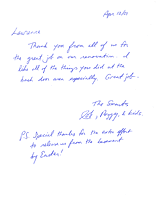 Lawrence
Thank you from all of us for
the great job on our renovation. I
like all of the things you did at the
back door area especially. Great job.
The Smiths
Bob, Peggy, & kids.
PS Special thanks for the extra effort
to relieve us from the basement
by Easter!